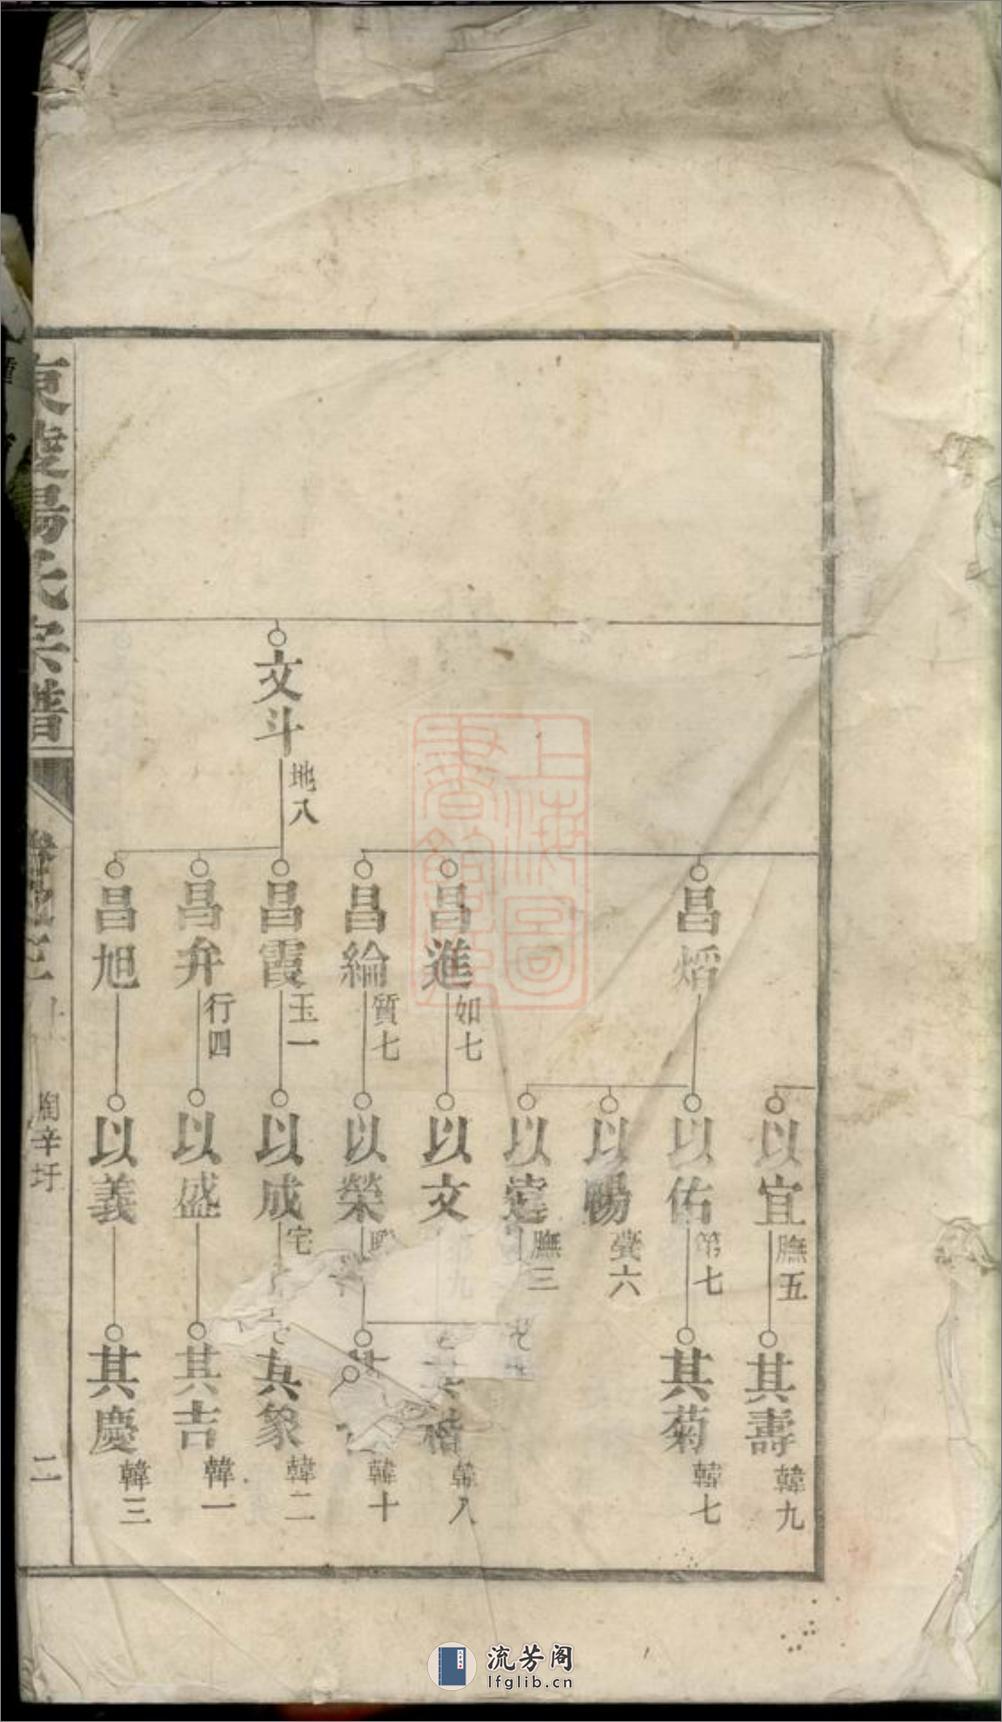 文斗
地八
昌熖
昌進
如七
昌綸
質七
昌霞
玉一
昌弁
行四
昌旭
以宜
膴五
以佑
第七
以暢
以達
膴三
以文
以榮
以成
宅
以盛
以義
其壽
韓九
其菊
韓七
楷
韓八
韓十
其象
韓二
其吉
韓一
其慶
韓三
楊氏宗譜
陶辛圩
二
上海圖
書館藏
流芳阁
lfglib.cn